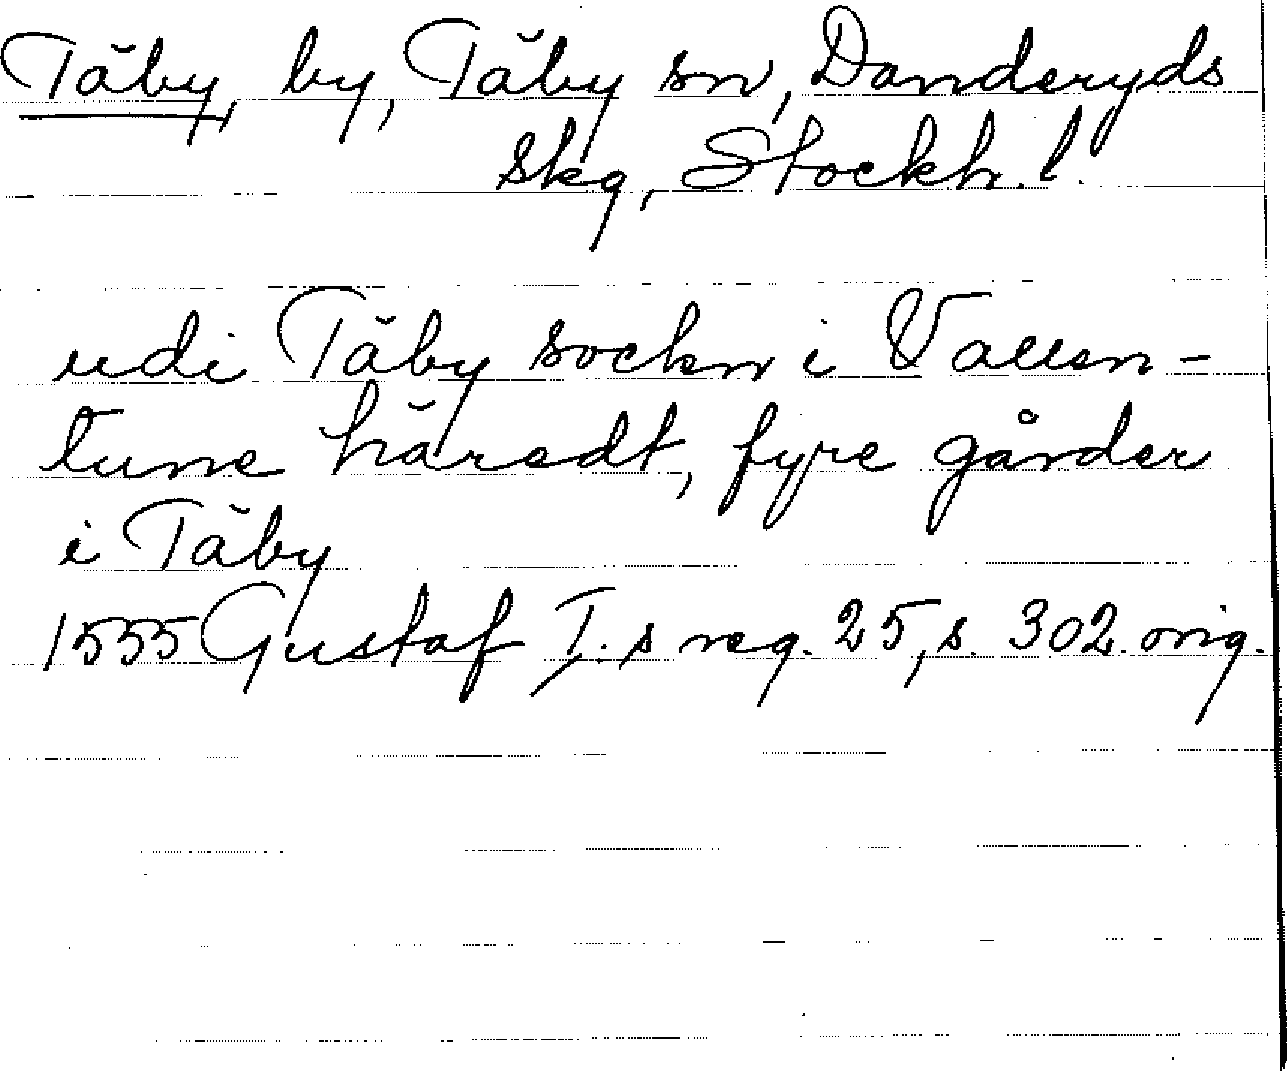 Täby, by, Täby sn, Danderyds
skg, Stockh. l.
udi Täby sockn i Vallen-
tune häredt, fyre gårder
i Täby
1555 Gustaf I.s reg. 25, s. 302. orig.